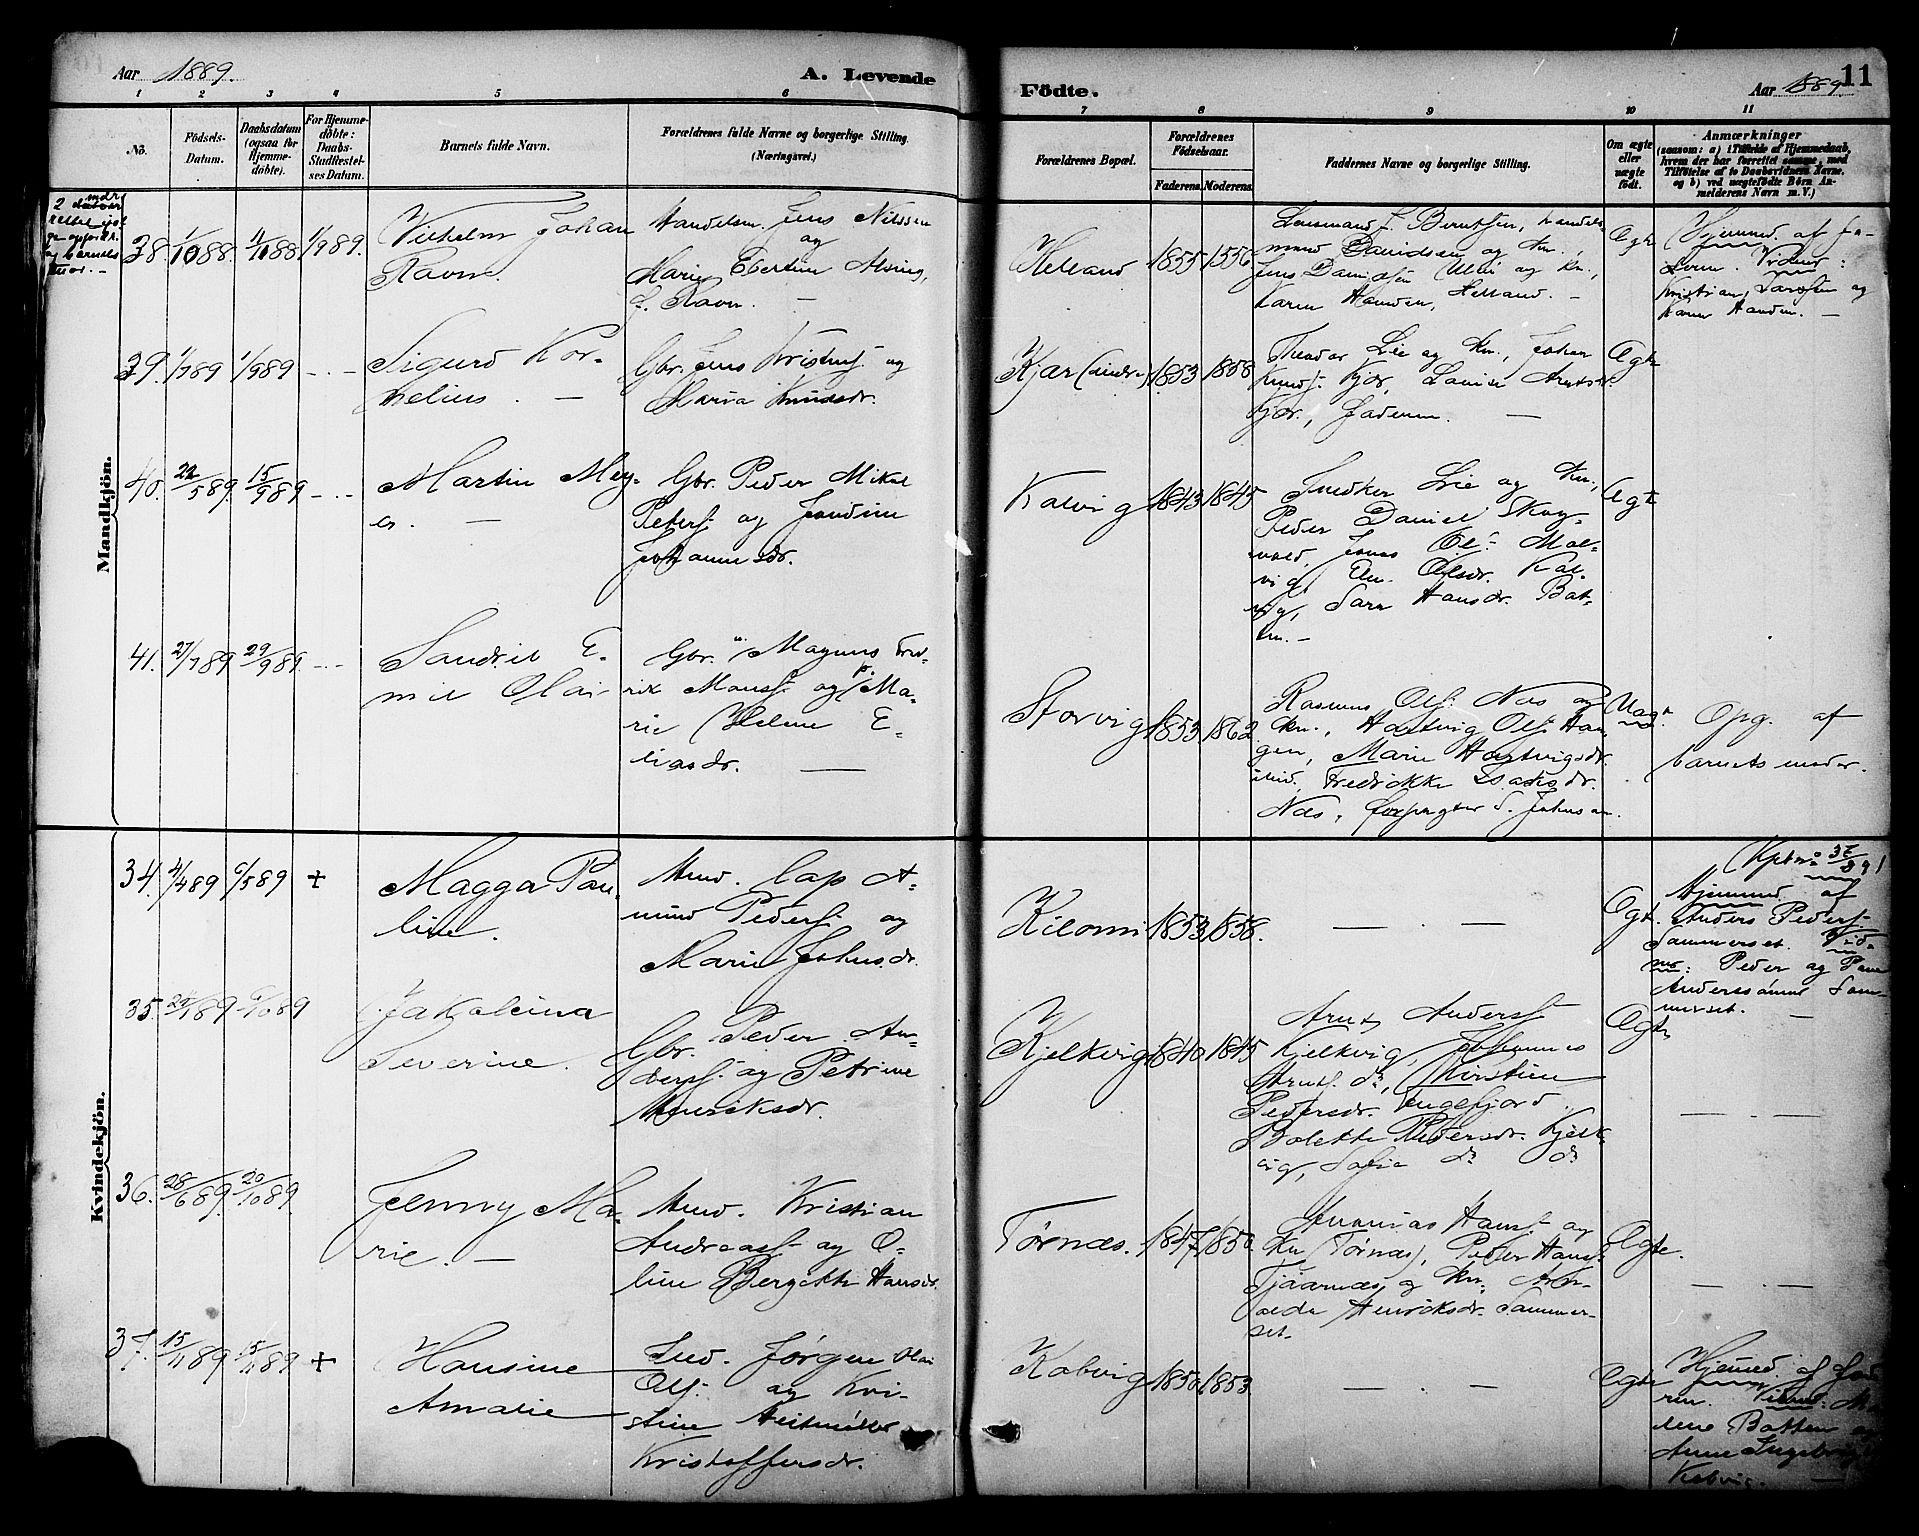 Aar 1889.
A. Levende
Födte.
Aar 1889.
11
1 2 3 4 5 6 7 8 9 10 11
No.
Födsels-
Datum.
Daabsdatum
(ogsaa for
Hjemme-
döbte).
For Hjemme-
döbte:
Daabs-
Stadfæstel-
ses Datum.
Barnets fulde Navn.
Forældrenes fulde Navne og borgerlige Stilling.
(Næringsvei.)
Forældrenes Bopæl.
Forældrenes
Födselsaar.
Faderens. Moderens.
Faddernes Navne og borgerlige Stilling.
Om ægte
eller
uægte
födt.
Anmærkninger
(saasom: a) i Tilfælde af Hjemmedaab,
hvem der har forrettet samme, med
Tilföielse af to Daabsvidners Navne,
og b) ved uægtefödte Börn An-
melderens Navn m. V.)
Mandkjön.
38. 1/10 88. 11/11 88 1/9 89.
Vilhelm Johan
Ravn.
Handelsm. Jens Nilssen
og
Marie Ebertine Alsing,
f. Ravn. —
Helland 1855 1556
Lensmand J. Berntsen, Handels-
mand Davidsen og Kn.,
og Kn.,
Karen Hansen, Helland. —
Ægte
Hjemmed. af Fa-
deren. Vidner:
Kristian Larssen og
Karen Hansen. —
39. 1/7 89 1/9 89 - . -
Sigurd Kor-
nelius. —
Gbr. Jens Kristens. og
Maria Knudsdr.
Kjær (indre) 1853 1858
Theodor Lie og Kn., Johan
Knuds. Kjær, Lovise Arntsdr.
Kjær, Faderen. —
Ægte
40. 22/5 89. 15/9 89 - . -
Martin Mey-
er. —
Gbr. Peder Mikal
Peters. og Jondine
Johannesdr.
Kalvig 1843 1845
Lie og Kn.,
Peder Daniel Skog-
vold, Jonas Ols. Mal-
vig, Elen Olsdr. Kal-
vig, Sara Hansdr. Bot-
ten. —
Ægte
41. 27/7 89 29/9 89. - . -
Sandrie E-
mil Olai
Gbr. Magnus Fred-
rik Mons. og p. Ma-
rie Helene E-
liasdr. —
Storvig 1853 1862
Rasmus Ols. Næs og
Kn., Hartvig Ols. Hau-
gen, Marie Hartvigsdr.
ibid., Fredrikke Isaksdr.
Næs, forpagter S. Johnsen.
Uægt.
Opg. af
barnets moder.
Kvindekjön.
34. 4/4 89 6/5 89 +
Magga Pau-
line.
Arbd. Cap A-
mund Peders. og
Marie Johnsdr.
Kilomi 1853 1858.
— . —
Ægte.
Hjemmed. af
Anders Peders.
Sommerset. Vid-
ner: Peder og Paul
Anderssønner Som-
merset. —
35. 89 6/10 89
Jakobina
Severine.
Gbr. Peder An-
ders. og Petrine
Henriksdr.
Kjelkvig 1840 1845
Arnt Anders.
Kjelkvig, Johannes
Arnts. do, Kirstien
Pedersdr. Tengefjord.
Bolette Pedersdr. Kjelk-
vig, Sofie do do
Ægte
— . —
36. 28/6 89. 20/10 89
Jenny Ma-
rie. —
Arbd. Kristian
Andreass. og O-
line Bergette Hansdr.
Tørnæs. 1847 1850.
Ananias Hans. og
Kn (Tørnæs), Peder Hans.
Tjäarnæs og Kn.,
Henriksdr. Sommer-
set.
Ægte.
— . —
37. 15/11 89 15/11 89 +
Hansine
Amalie
Ind. Jørgen Olai
Ols. og Kri-
stine
Kristoffersdr.
Kobvig 1850 1853
— . —
Ægte
Hjemmed. af Fad
ren. Vidner: Ma
Botten og
Anne Ingeborg
Kobvig. —